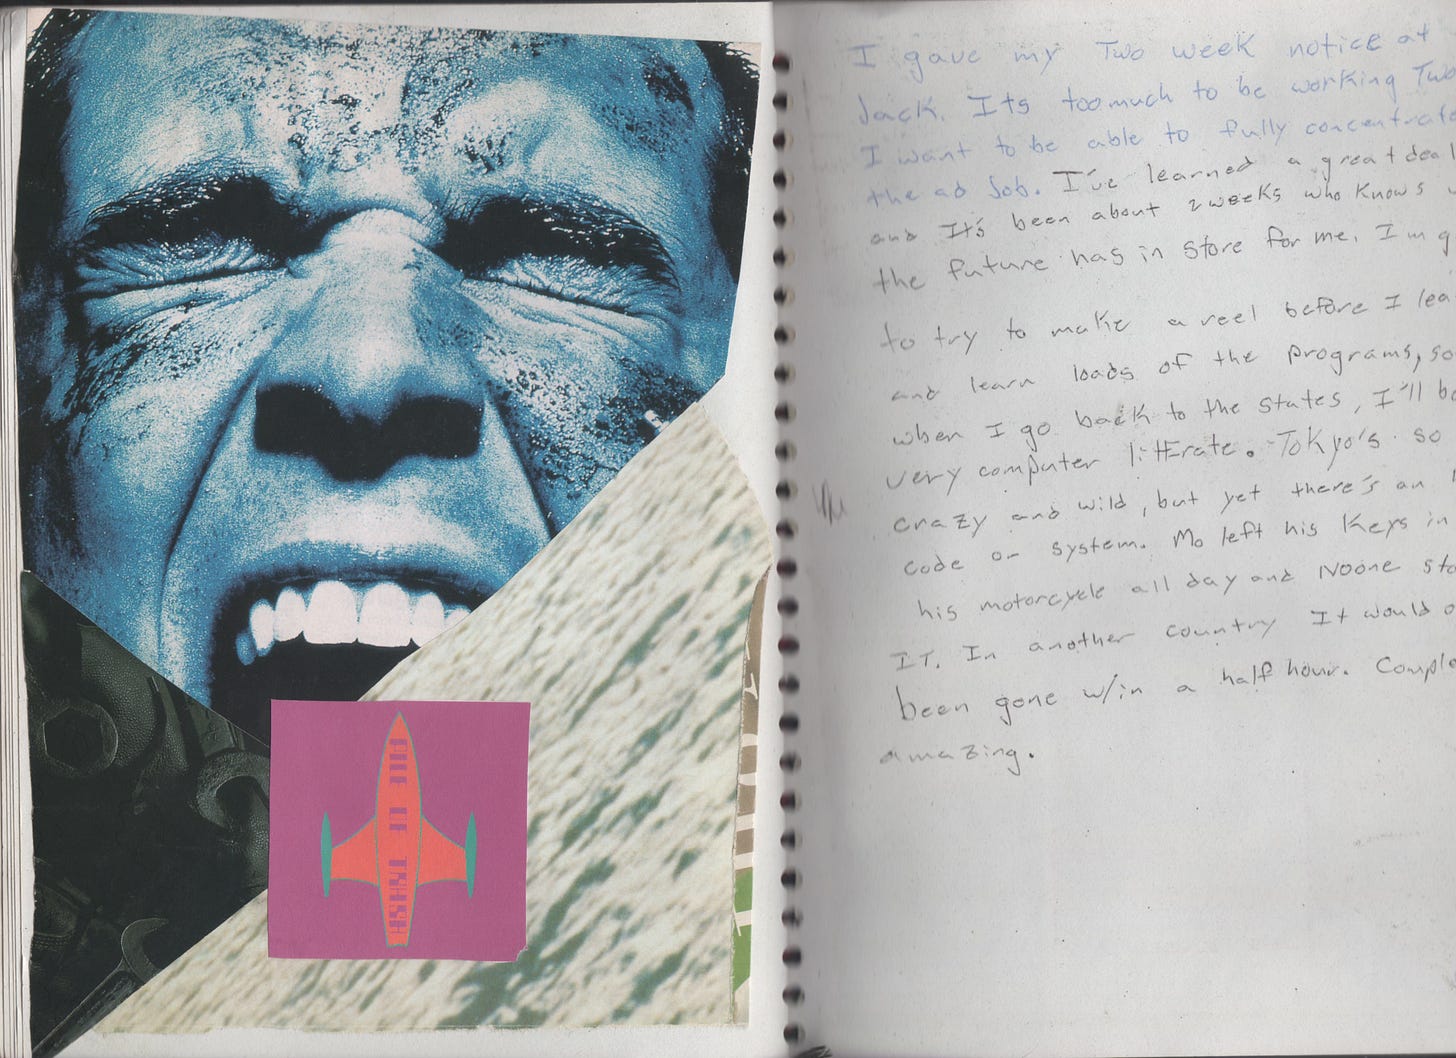 I gave my Two week notice at
Jack. Its too much to be working Two
I want to be able to fully concentrate
the ad Job. I've learned a great deal
and It's been about 2 weeks who knows
the future has in store for me. Im g
to try to make a reel before I lea
and learn loads of the programs, so
when I go back to the states, I'll be
very computer litterate. Tokyo's so
crazy and wild, but yet there's an
code or system. Mo left his Keys in
his motorcycle all day and Noone sto
IT. In another country It would
been gone w/in a half hour. Comple
amazing.